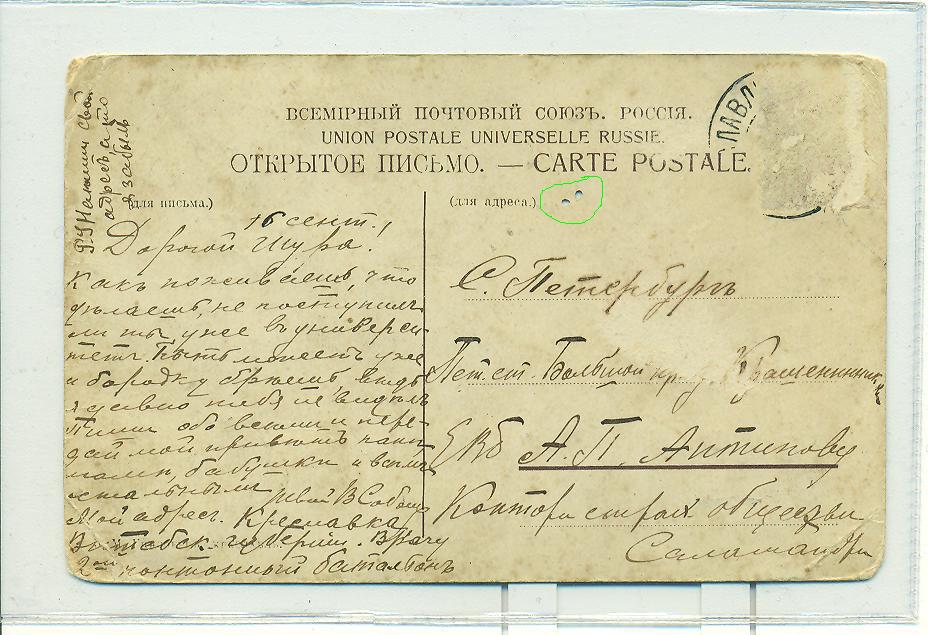 ВСЕМІРНЫЙ ПОЧТОВЫЙ СОЮЗЪ. РОССІЯ.
UNION POSTALE UNIVERSELLE RUSSIE.
ОТКРЫТОЕ ПИСЬМО. — CARTE POSTALE.
ПАВЛ
(для письма.)
(для адреса.)
P.S. Напиши свой
адресъ, а то
я забылъ
16 сент.
Дорогой Шура!
Какъ поживаешь, что
дѣлаешь, не поступилъ
ли ты уже въ универси-
тетъ. Быть можетъ уже
и бородку брѣешь, вѣдь
я давно тебя не видѣлъ
Пиши обо всемъ и пере-
дай мой привѣтъ папѣ
мамѣ, бабушкѣ и всѣмъ
остальнымъ
Твой В.
Мой адрес. Креславка
Витебск. губерніи. Врачу
2ой понтонный баталіонъ
С. Петербургъ
Пет. ст. Большой пр. д. Крашенинник
ЕВб А. П. Антипову
Контора страх. общества
Саламандра